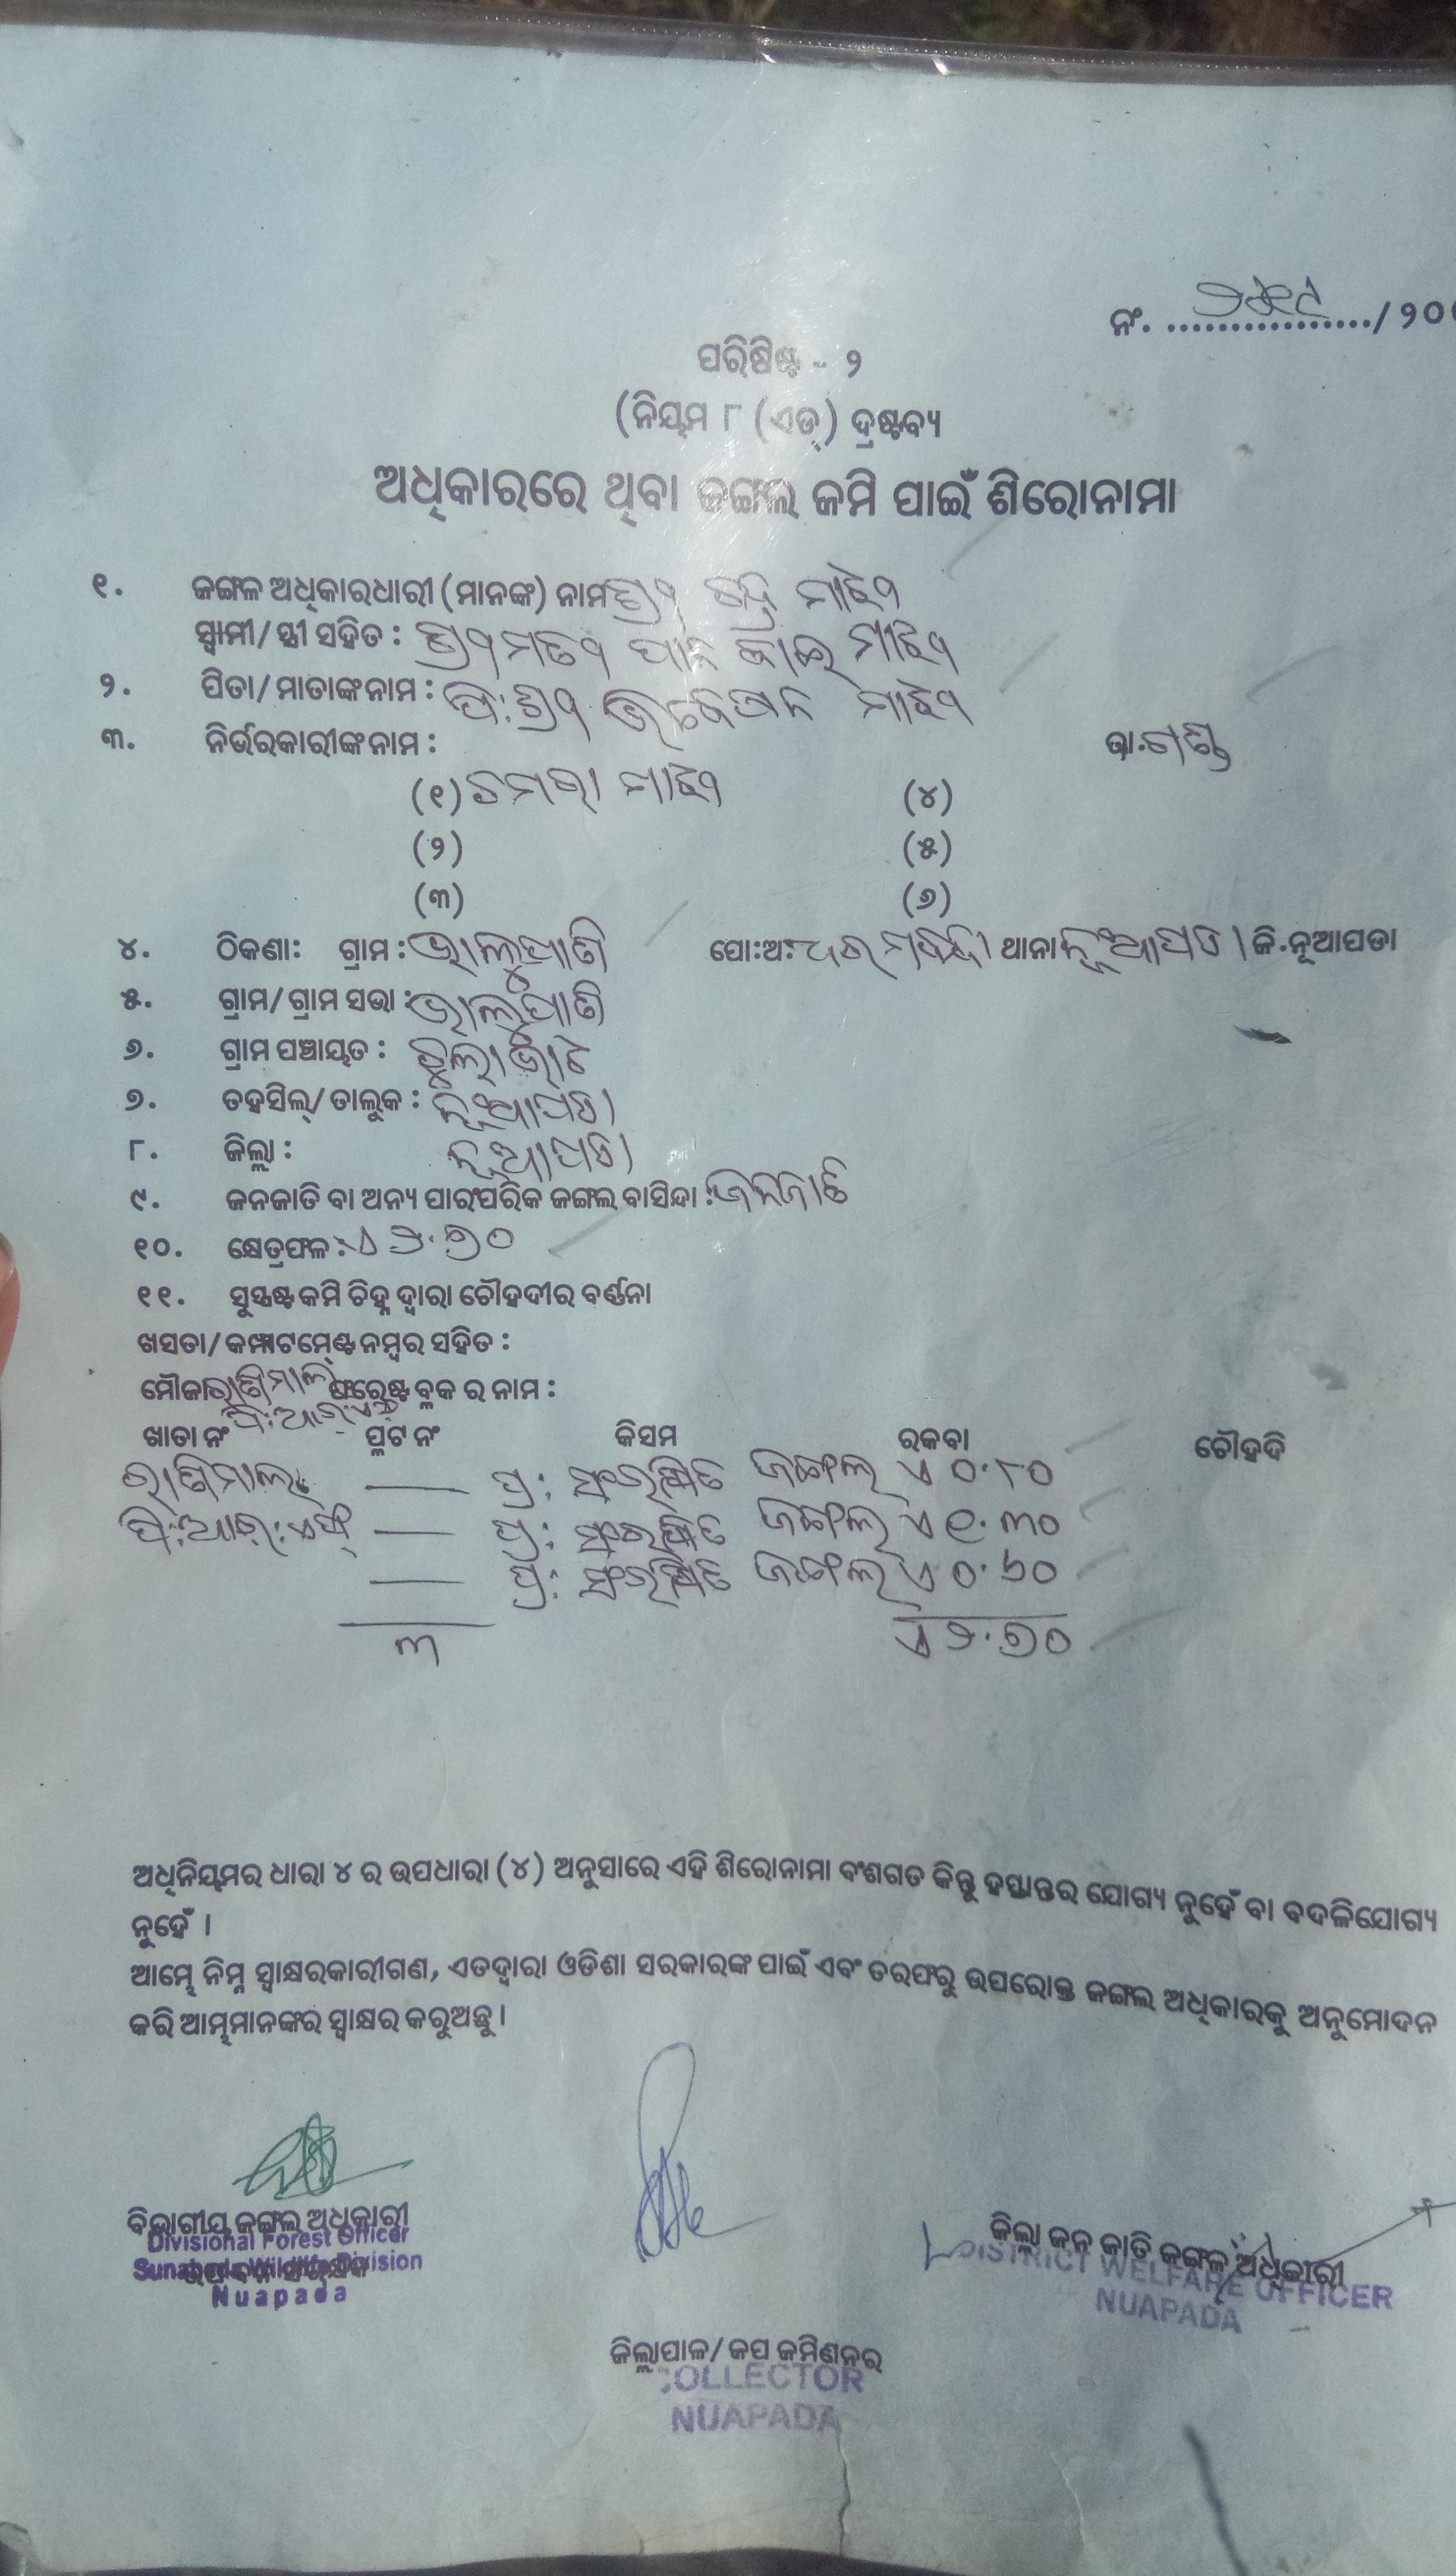 ନଂ. ................/ ୨୦
ପରିଶିଷ୍ଟ - ୨
(ନିୟମ ୮ (ଏଚ୍) ଦ୍ରଷ୍ଟବ୍ୟ
ଅଧିକାରରେ ଥିବା ଜଙ୍ଗଲ ଜମି ପାଇଁ ଶିରୋନାମା
୧. ଜଙ୍ଗଳ ଅଧିକାରଧାରୀ (ମାନଙ୍କ) ନାମ ଶ୍ରୀ ମାଝୀ
ସ୍ୱାମୀ/ସ୍ତ୍ରୀ ସହିତ : ଶ୍ରୀମତୀ ମାଝୀ
୨. ପିତା/ମାତାଙ୍କ ନାମ : ପି:ଶ୍ରୀ ମାଝୀ
୩. ନିର୍ଭରକାରୀଙ୍କ ନାମ : ଜା.ଗଣ୍ଡ
(୧) ଚମରା ମାଝୀ (୪)
(୨) (୫)
(୩) (୬)
୪. ଠିକଣା: ଗ୍ରାମ : ଭାଲୁପାଣି ପୋ:ଅ: ଧରମବନ୍ଧା ଥାନା ନୂଆପଡା ଜି.ନୂଆପଡା
୫. ଗ୍ରାମ/ଗ୍ରାମ ସଭା : ଭାଲୁପାଣି
୬. ଗ୍ରାମ ପଞ୍ଚାୟତ :
୭. ତହସିଲ୍/ତାଲୁକ : ନୂଆପଡା
୮. ଜିଲ୍ଲା : ନୂଆପଡା
୯. ଜନଜାତି ବା ଅନ୍ୟ ପାରଂପରିକ ଜଙ୍ଗଲ ବାସିନ୍ଦା : ଜନଜାତି
୧୦. କ୍ଷେତ୍ରଫଳ : ଏ ୨.୭୦
୧୧. ସୁସ୍ପଷ୍ଟ ଜମି ଚିହ୍ନ ଦ୍ୱାରା ଚୌହଦୀର ବର୍ଣ୍ଣନା
ଖସଡା/କମ୍ପାଟମେଣ୍ଟ ନମ୍ବର ସହିତ :
ମୌଜା ରାଣିମାଲ ଫରେଷ୍ଟ ବ୍ଲକ ର ନାମ :
ପି:ଆର୍:ଏଫ୍
ଖାତା ନଂ ପ୍ଲଟ ନଂ କିସମ ରକବା ଚୌହଦି
ରାଣିମାଲ — ପ୍ର: ସଂରକ୍ଷିତ ଜଙ୍ଗଲ ଏ ୦.୮୦
ପି:ଆର୍:ଏଫ୍ — ପ୍ର: ସଂରକ୍ଷିତ ଜଙ୍ଗଲ ଏ ୧.୩୦
— ପ୍ର: ସଂରକ୍ଷିତ ଜଙ୍ଗଲ ଏ ୦.୬୦
୩ ଏ ୨.୭୦
ଅଧିନିୟମର ଧାରା ୪ ର ଉପଧାରା (୪) ଅନୁସାରେ ଏହି ଶିରୋନାମା ବଂଶଗତ କିନ୍ତୁ ହସ୍ତାନ୍ତର ଯୋଗ୍ୟ ନୁହେଁ ବା ବଦଳିଯୋଗ୍ୟ
ନୁହେଁ ।
ଆମ୍ଭେ ନିମ୍ନ ସ୍ୱାକ୍ଷରକାରୀଗଣ, ଏତଦ୍ୱାରା ଓଡିଶା ସରକାରଙ୍କ ପାଇଁ ଏବଂ ତରଫରୁ ଉପରୋକ୍ତ ଜଙ୍ଗଲ ଅଧିକାରକୁ ଅନୁମୋଦନ
କରି ଆମ୍ଭମାନଙ୍କର ସ୍ୱାକ୍ଷର କରୁଅଛୁ ।
ବିଭାଗୀୟ ଜଙ୍ଗଲ ଅଧିକାରୀ
Divisional Forest Officer
Sunabeda Wildlife Division
Nuapada
ଜିଲ୍ଲା ଜନ ଜାତି ଜଙ୍ଗଲ ଅଧିକାରୀ
DISTRICT WELFARE OFFICER
NUAPADA
ଜିଲ୍ଲାପାଳ/ଜପ କମିଶନର
COLLECTOR
NUAPADA